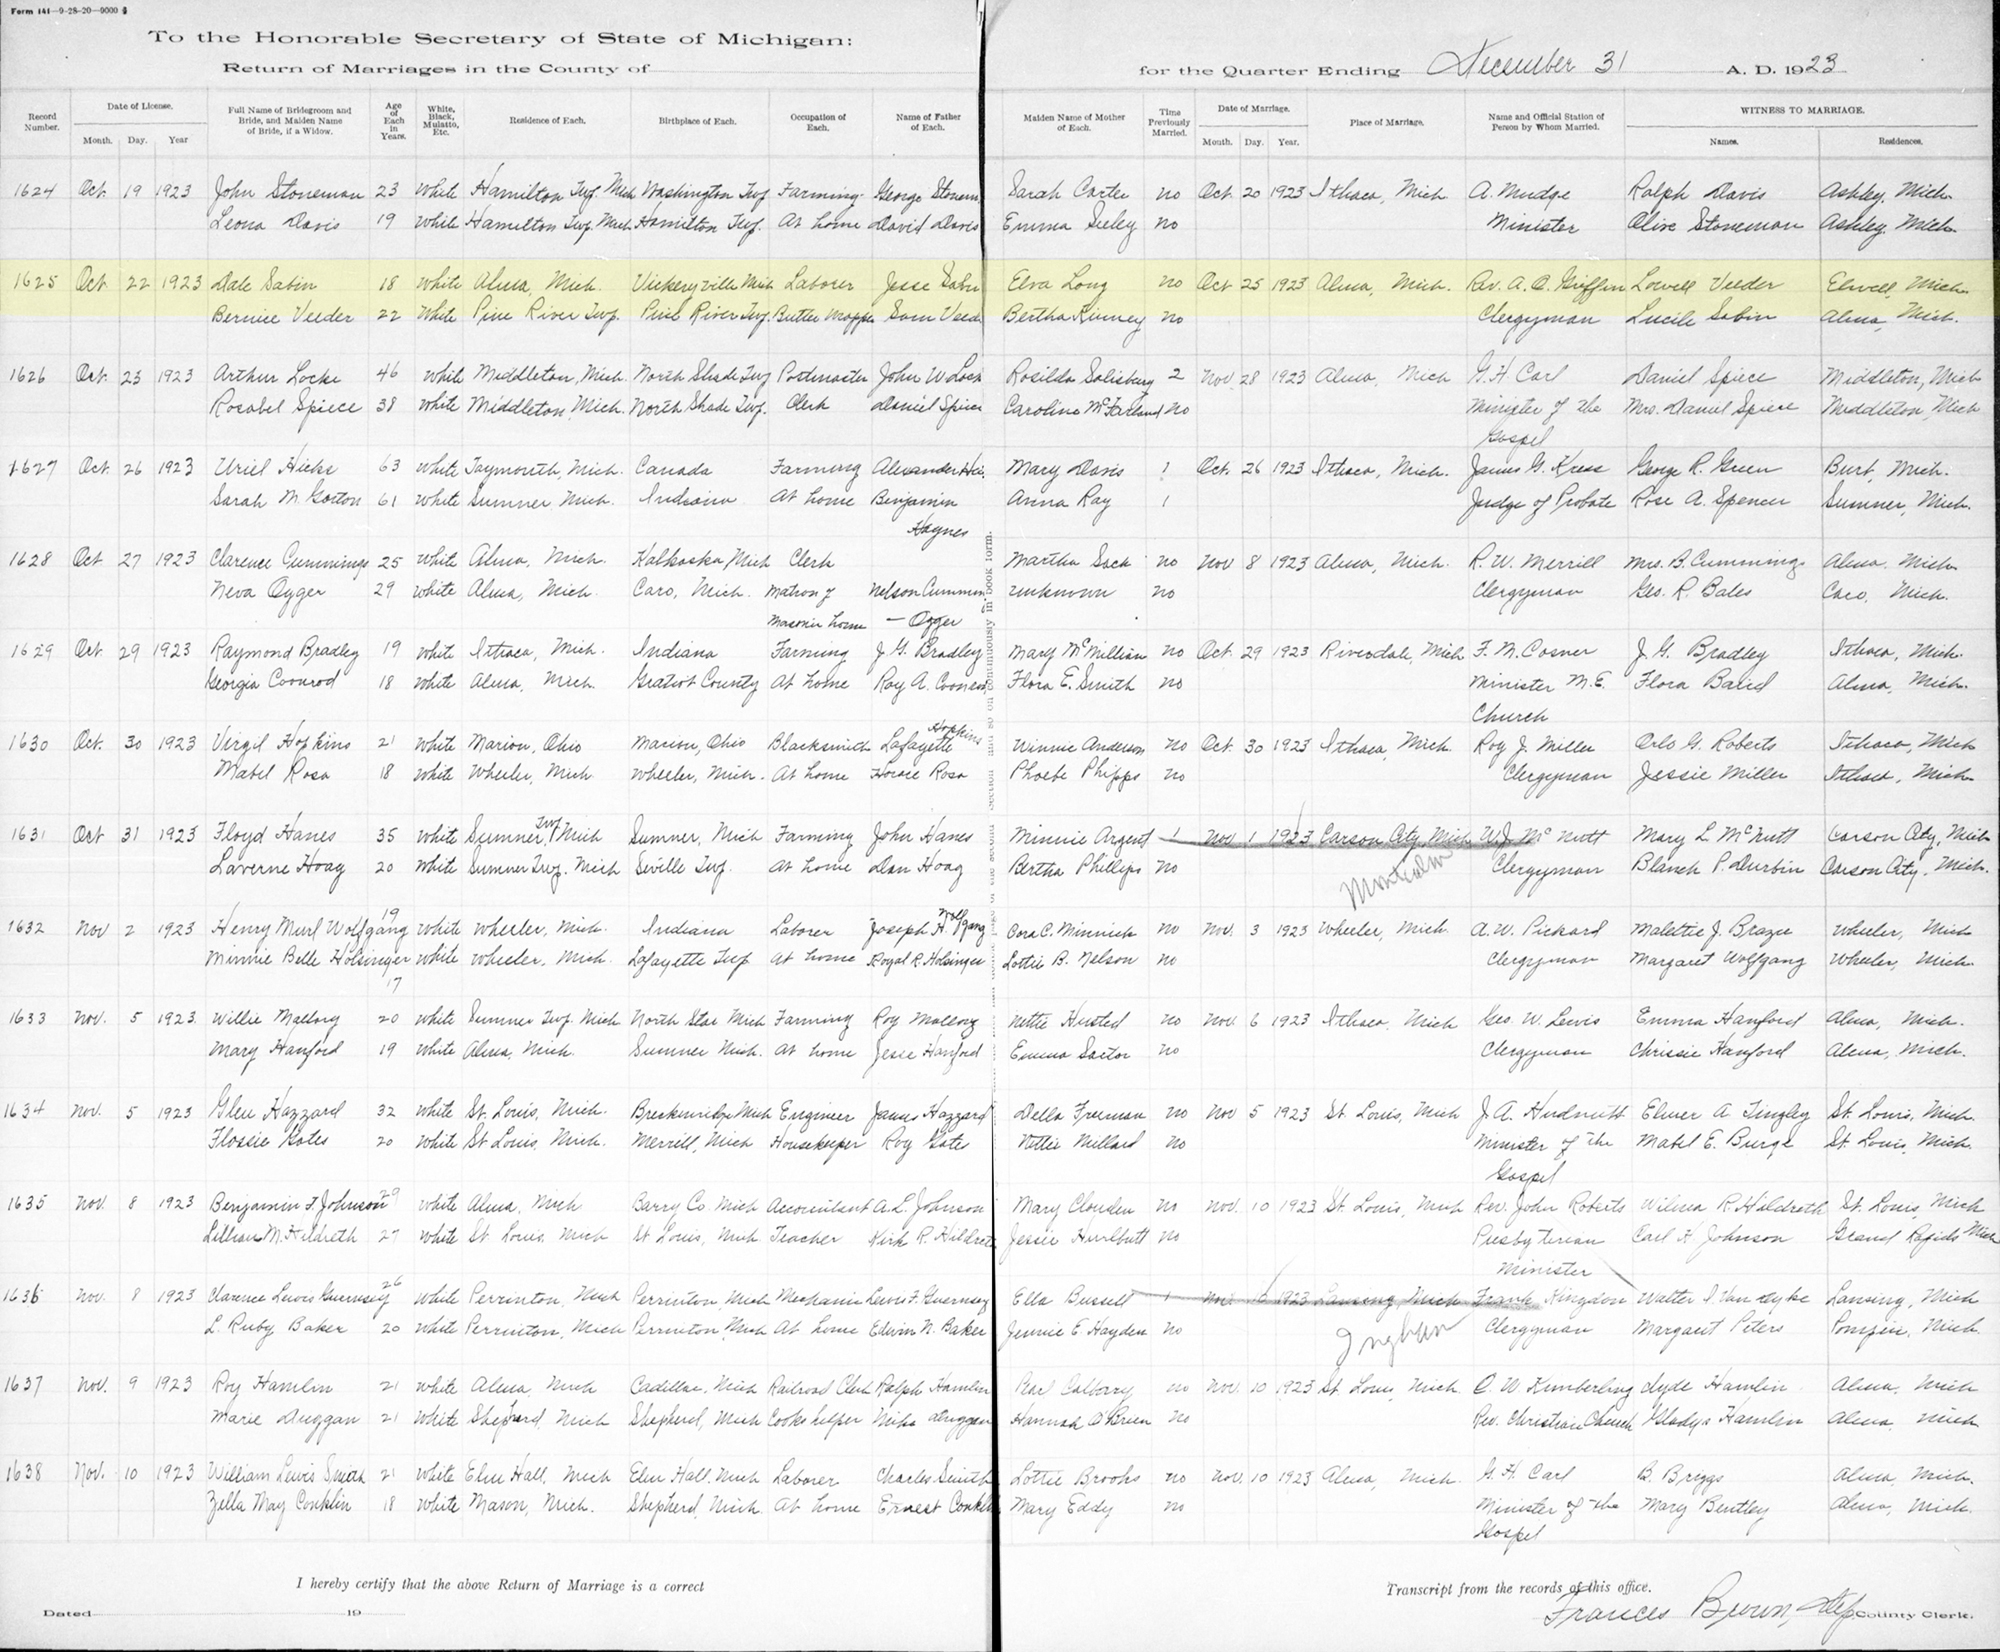 Form 141—9-28-20—9000
To the Honorable Secretary of State of Michigan:
Return of Marriages in the County of for the Quarter Ending December 31 A. D. 1923
Record Number. Date of License. Month. Day. Year Full Name of Bridegroom and Bride, and Maiden Name of Bride, if a Widow. Age of Each in Years. White, Black, Mulatto, Etc. Residence of Each. Birthplace of Each. Occupation of Each. Name of Father of Each. Maiden Name of Mother of Each. Time Previously Married. Date of Marriage. Month. Day. Year. Place of Marriage. Name and Official Station of Person by Whom Married. WITNESS TO MARRIAGE. Names. Residences.
1624 Oct. 19 1923 John Stoneman 23 white Hamilton Twp. Mich Washington Twp Farming George Stonem Sarah Carter no Oct. 20 1923 Ithaca, Mich A. Mudge Ralph Davis Ashley, Mich.
Leona Davis 19 white Hamilton Twp. Mich Hamilton Twp. At home David Davis Emma Seeley no Minister Olive Stoneman Ashley, Mich.
1625 Oct. 22 1923 Dale Sabin 18 white Alma, Mich. Vickeryville Mich Laborer Jesse Sabi Elva Long no Oct 25 1923 Alma, Mich. Rev. A. Griffin Lowell Veeder Elwell, Mich.
Bernice Veeder 22 White Pine River Twp. Pine River Twp. Butter Wrapper Sam Veede Bertha Kinney no Clergyman Lucile Sabin Alma, Mich.
1626 Oct. 23 1923 Arthur Locke 46 white Middleton, Mich. North Shade Twp Postmaster John W Lock Rosilda Salisbury 2 Nov. 28 1923 Alma, Mich G. H. Carl Daniel Spiece Middleton, Mich
Rosabel Spiece 38 white Middleton, Mich. North Shade Twp. Clerk Daniel Spiece Caroline McFarland no Minister of the Mrs. Daniel Spiece Middleton, Mich
Gospel
1627 Oct. 26 1923 Uriel Hicks 63 white Taymouth, Mich. Canada Farming Alexander Hic Mary Davis 1 Oct. 26 1923 Ithaca, Mich. James G. Kress George R. Green Burt, Mich.
Sarah M. Gorton 61 white Sumner, Mich. Indiana At home Benjamin Anna Ray 1 Judge of Probate Rose A. Spencer Sumner, Mich.
Haynes
1628 Oct 27 1923 Clarence Cummings 25 white Alma, Mich. Kalkaska, Mich Clerk Martha Sack no Nov 8 1923 Alma, Mich. R. W. Merrill Mrs. B. Cummings Alma, Mich.
Neva Ogger 29 white Alma, Mich. Caro, Mich. Matron of Nelson Cummin unknown no Clergyman Geo. R. Bates Caro, Mich.
Masonic home — Ogger
1629 Oct. 29 1923 Raymond Bradley 19 white Ithaca, Mich. Indiana Farming J. G. Bradley Mary McMillian no Oct. 29 1923 Riverdale, Mich F. M. Cosner J. G. Bradley Ithaca, Mich.
Georgia Coonrod 18 white Alma, Mich. Gratiot County At home Ray A. Coonrod Flora E. Smith no Minister M. E. Flora Baird Alma, Mich.
Church
Hopkins
1630 Oct. 30 1923 Virgil Hopkins 21 white Marion, Ohio Marion, Ohio Blacksmith Lafayette Winnie Anderson no Oct. 30 1923 Ithaca, Mich. Roy J. Miller Orlo G. Roberts Ithaca, Mich
Mabel Rosa 18 white Wheeler, Mich Wheeler, Mich. At home Horace Rosa Phoebe Phipps no Clergyman Jessie Miller Ithaca, Mich.
1631 Oct 31 1923 Floyd Hanes 35 white Sumner Twp Mich Sumner, Mich Farming John Hanes Minnie Argent 1 Nov 1 1923 Carson City, Mich W. J. McNutt Mary L. McNutt Carson City, Mich
Laverne Hoag 20 white Sumner Twp. Mich Seville Twp. At home Dan Hoag Bertha Phillips no Montcalm Clergyman Blanch P. Durbin Carson City, Mich.
1632 Nov 2 1923 Henry Murl Wolfgang 19 white Wheeler, Mich. Indiana Laborer Joseph H. Wolfgang Cora C. Minnich no Nov. 3 1923 Wheeler, Mich. A. W. Pickard Malettie J. Brazee Wheeler, Mich
Minnie Belle Holsinger white Wheeler, Mich. Lafayette Twp At home Royal R. Holsinger Lottie B. Nelson no Clergyman Margaret Wolfgang Wheeler, Mich.
17
1633 Nov. 5 1923 Willie Mallory 20 white Sumner Twp. Mich North Star Mich Farming Roy Mallory Nettie Husted no Nov. 6 1923 Ithaca, Mich Geo. W. Lewis Emma Hanford Alma, Mich.
Mary Hanford 19 white Alma, Mich. Sumner Mich. At home Jesse Hanford Emma Sactor no Clergyman Chrissie Hanford Alma, Mich.
1634 Nov. 5 1923 Glen Hazzard 32 white St. Louis, Mich. Breckenridge Mich Engineer James Hazzard Della Freeman no Nov 5 1923 St. Louis, Mich J. A. Hudnutt Elmer A Tingley St. Louis, Mich.
Flossie Gates 20 white St Louis, Mich. Merrill, Mich Housekeeper Roy Gate Nettie Millard no Minister of the Mabel E. Burge St. Louis, Mich.
Gospel
1635 Nov. 8 1923 Benjamin F. Johnson 29 white Alma, Mich Barry Co Mich Accountant A. L. Johnson Mary Clouden no Nov. 10 1923 St. Louis, Mich Rev. John Roberts Wilma R. Hildreth St. Louis, Mich
Lillian M. Hildreth 27 white St. Louis, Mich St Louis, Mich. Teacher Kirk R. Hildret Jessie Hurlbutt no Presbyterian Carl H Johnson Grand Rapids Mich
Minister
1636 Nov. 8 1923 Clarence Lewis Guernsey 26 white Perrinton, Mich Perrinton, Mich Mechanic Lewis F. Guernsey Ella Bussell 1 Nov. 1923 Lansing, Mich Frank Kingdon Walter J. Van dyke Lansing, Mich
L. Ruby Baker 20 white Perrinton, Mich Perrinton, Mich At home Edwin N. Baker Jennie E. Hayden no Ingham Clergyman Margaret Peters Pompeii, Mich.
1637 Nov. 9 1923 Roy Hamlin 21 white Alma, Mich Cadillac, Mich Railroad Clerk Ralph Hamlin Pearl Calbary no Nov. 10 1923 St Louis, Mich. O. W. Kimberling Clyde Hamlin Alma, Mich
Marie Duggan 21 white Shepherd, Mich Shepherd, Mich Cooks helper Mike Duggan Hannah O'Brien no Rev. Christian Church Gladys Hamlin Alma, Mich
1638 Nov. 10 1923 William Lewis Smith 21 white Elm Hall, Mich Elm Hall, Mich Laborer Charles Smith Lottie Brooks no Nov. 10 1923 Alma, Mich. G. H. Carl B. Briggs Alma, Mich.
Zella May Conklin 18 white Mason, Mich. Shepherd, Mich. At home Ernest Conkli Mary Eddy no Minister of the Mary Bentley Alma, Mich.
Gospel
I hereby certify that the above Return of Marriage is a correct Transcript from the records of this office.
Dated 19 Frances Brown, Dep County Clerk.